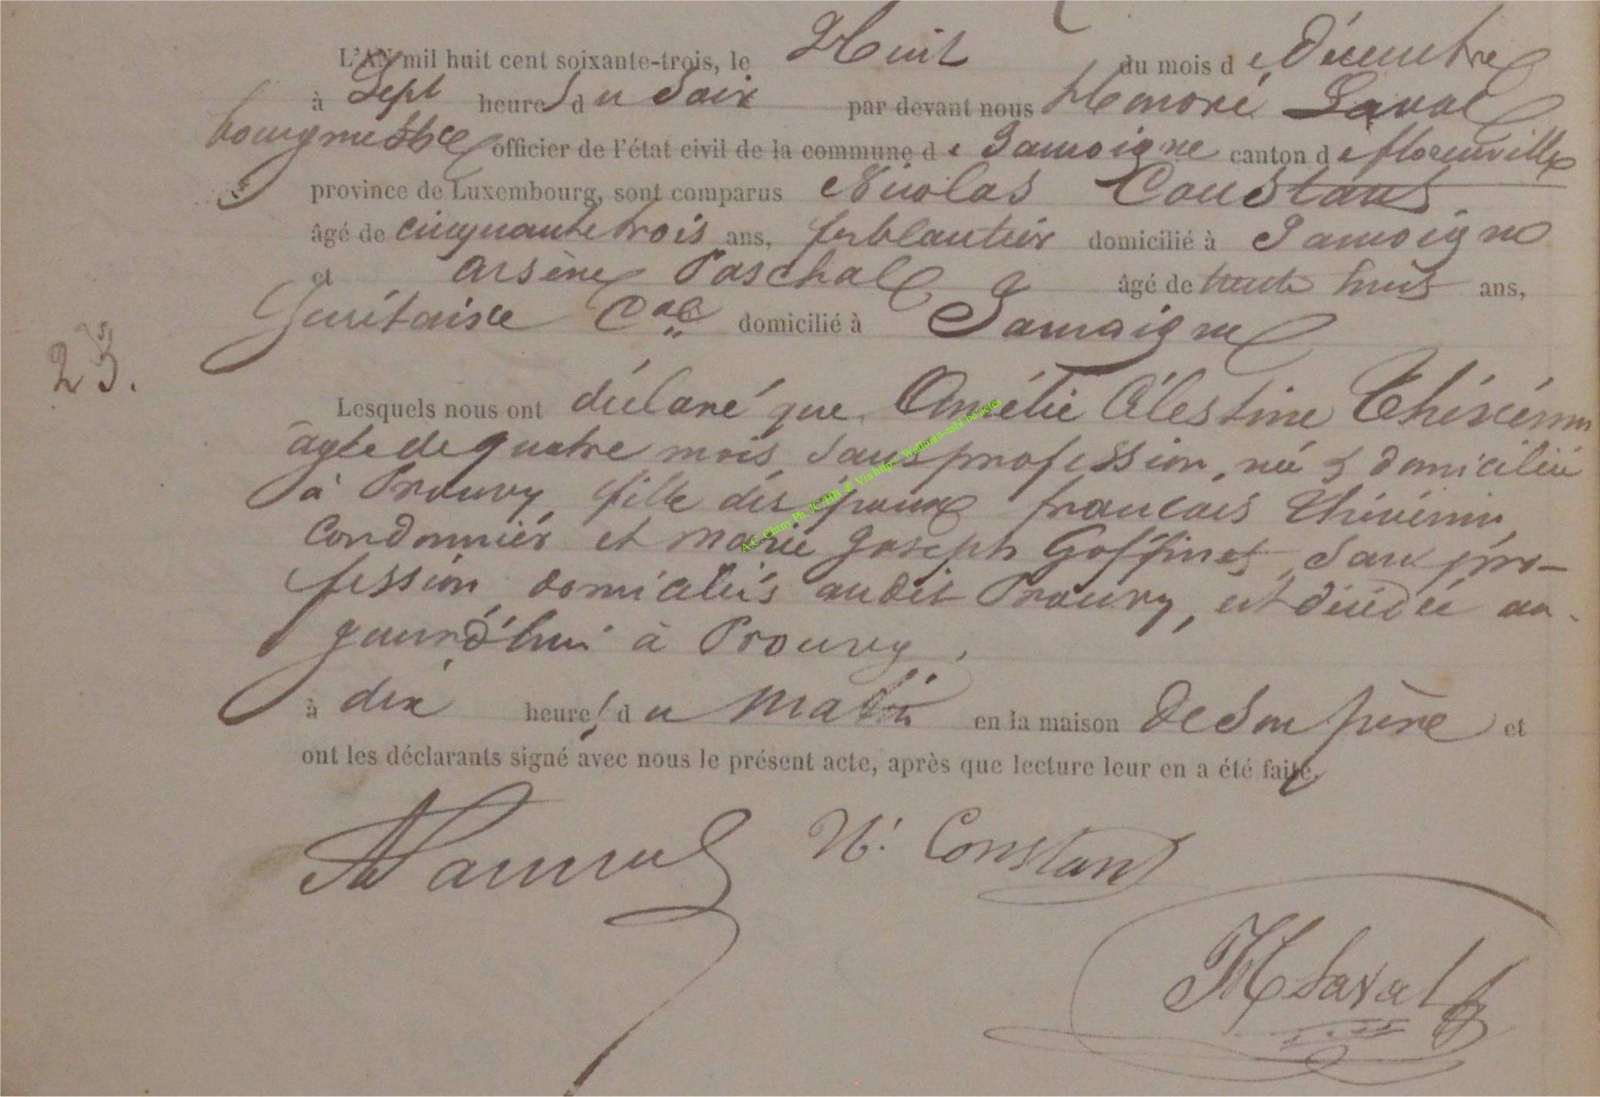 L'AN mil huit cent soixante-trois, le Huit du mois de décembre
à Sept heures du Soir par devant nous Honoré Laval
bourgmestre officier de l'état civil de la commune de Jamoigne canton de florenville
province de Luxembourg, sont comparus Nicolas Constant
âgé de cinquante trois ans, ferblantier domicilié à Jamoigne
et Arsène Paschal âgé de trente huit ans,
Secrétaire Cal domicilié à Jamoigne
23.
Lesquels nous ont déclaré que Amélie Célestine Thévénin
agée de quatre mois sans profession, née & domiciliée
à Prouvy fille des époux francois Thévénin
Cordonnier et Marie Joseph Goffinet, sans pro-
fession domiciliés audit Prouvy, est décédée au-
jourd'hui à Prouvy,
à dix heures du matin en la maison de Son père et
ont les déclarants signé avec nous le présent acte, après que lecture leur en a été faite.
N. Constant
H Laval